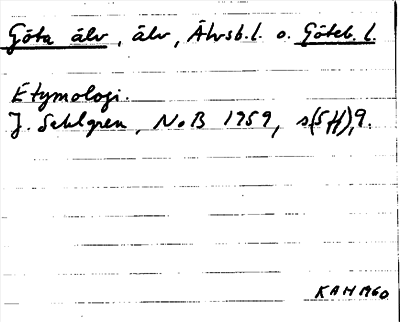 Göta älv, älv, Älvsb. l. o. Göteb. l.
Etymologi.
J. Sahlgren, NoB 1959, s(5ff), 9.
KAH 1960